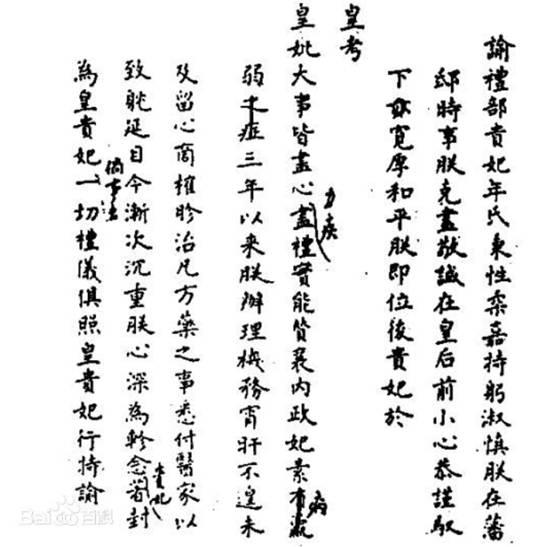 諭禮部貴妃年氏秉性柔嘉持躬淑慎朕在藩
邸時事朕克盡敬誠在皇后前小心恭謹馭
下亦寬厚和平朕即位後貴妃於
皇考
皇妣大事皆盡心力疾盡禮實能贊襄內政妃素病有羸
弱之症三年以來朕辦理機務宵旰不遑未
及留心商榷胗治凡方藥之事悉付醫家以
致躭延目今漸次沉重朕心深為軫念貴妃著封
為皇貴妃倘事一切禮儀俱照皇貴妃行特諭
Baidu百科